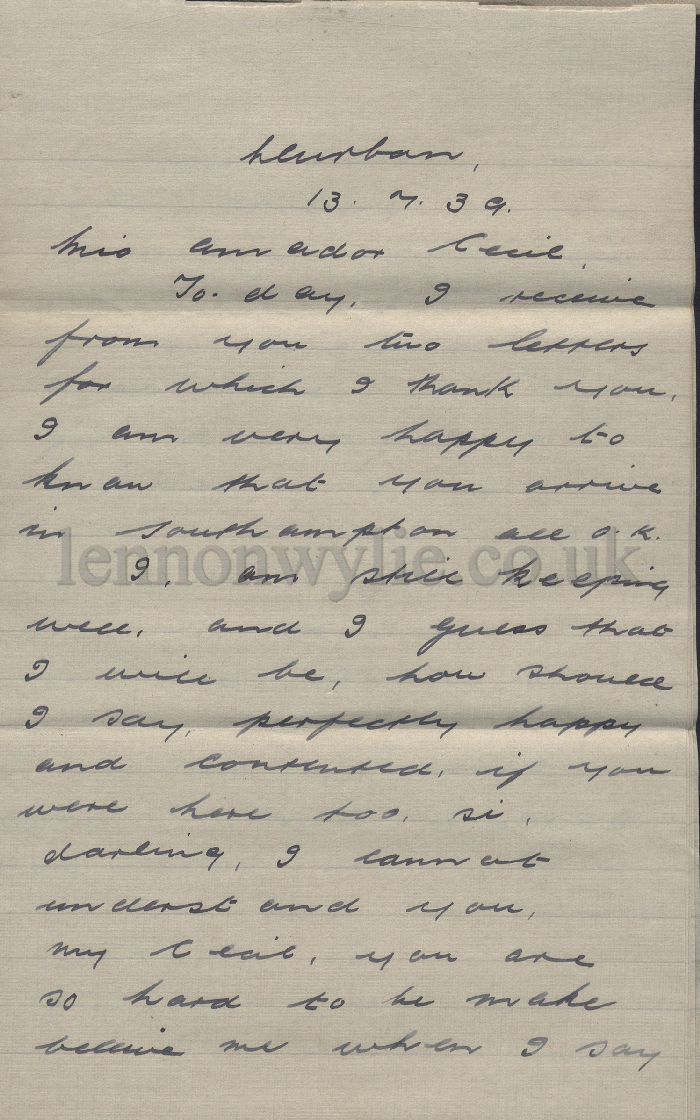 Durban,
13. 7. 39.
Mio amador Cecil,
To-day, I receive
from you two letters
for which I thank you,
I am very happy to
know that you arrive
in Southampton all O.K.
lennonwylie.co.uk
I, am still keeping
well, and I guess that
I will be, how should
I say, perfectly happy
and contented, if you
were here too, si,
darling, I cannot
understand you,
my Cecil, you are
so hard to be make
believe me when I say